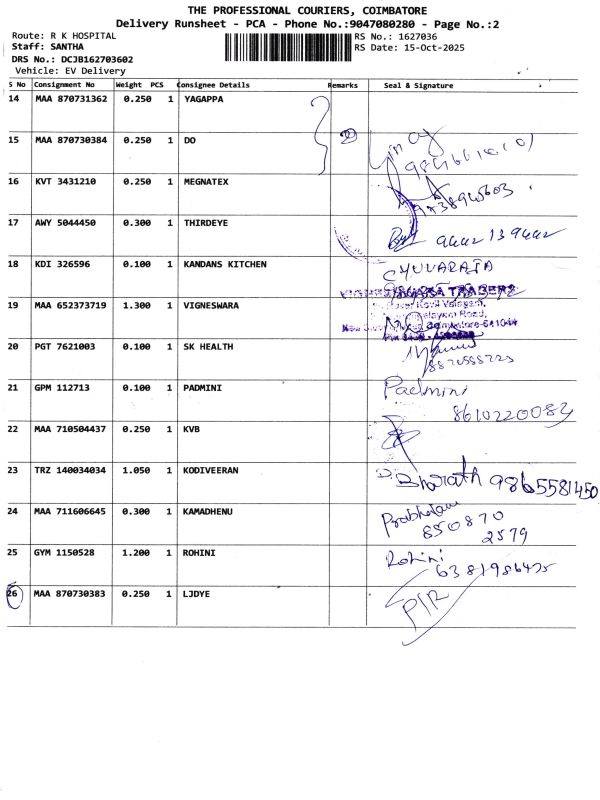 THE PROFESSIONAL COURIERS, COIMBATORE
Delivery Runsheet - PCA - Phone No.:9047080280 - Page No.:2
Route: R K HOSPITAL
RS No.: 1627036
Staff: SANTHA
RS Date: 15-Oct-2025
DRS No.: DCJB162703602
Vehicle: EV Delivery
S No Consignment No Weight PCS Consignee Details Remarks Seal & Signature
14 MAA 870731362 0.250 1 YAGAPPA
15 MAA 870730384 0.250 1 DO
16 KVT 3431210 0.250 1 MEGNATEX
17 AWY 5044450 0.300 1 THIRDEYE
18 KDI 326596 0.100 1 KANDANS KITCHEN YUVARAJA
19 MAA 652373719 1.300 1 VIGNESWARA
20 PGT 7621003 0.100 1 SK HEALTH
21 GPM 112713 0.100 1 PADMINI Padmini
8610220083
22 MAA 710504437 0.250 1 KVB
23 TRZ 140034034 1.050 1 KODIVEERAN Bharath 9865581450
24 MAA 711606645 0.300 1 KAMADHENU
850870
2579
25 GYM 1150528 1.200 1 ROHINI Rohini
26 MAA 870730383 0.250 1 LJDYE P/R